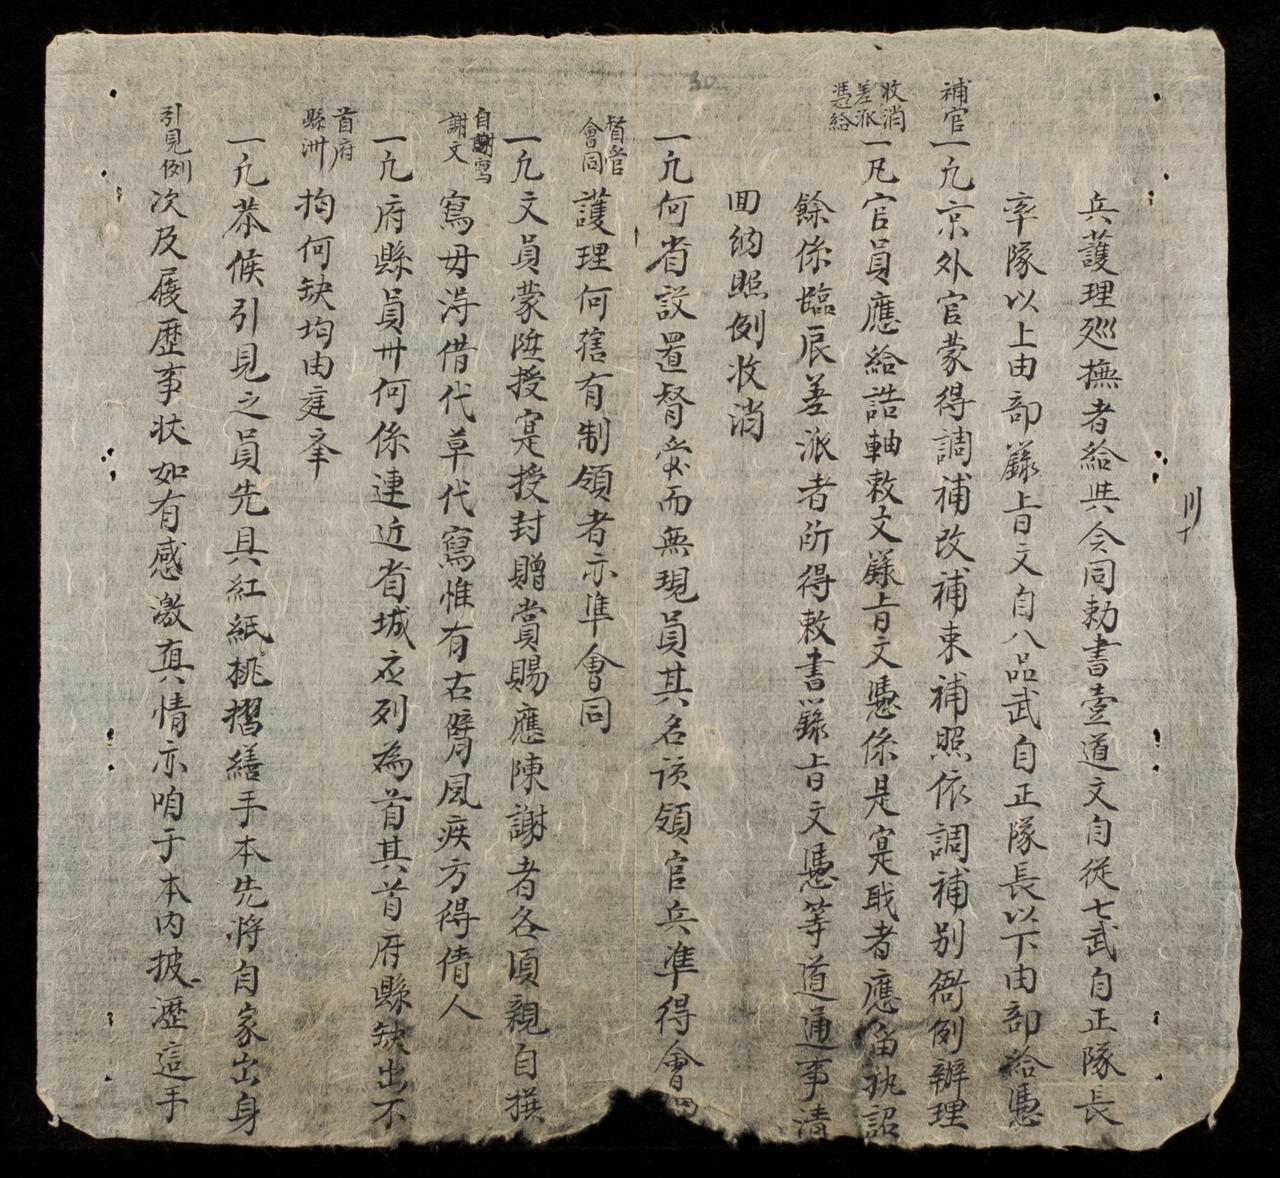 兵護理廵撫者給與会同勅書壹道文自從七武自正隊長
率隊以上由部錄旨文自八品武自正隊長以下由部給憑
補官
一凢京外官蒙得調補改補束補照依調補别衙例辦理
收消
差派
憑給
一凡官員應給誥軸敕文錄旨文憑係是寔戝者應畄执詔
餘係臨辰差派者所得敕書錄旨文憑等道通事清
囬納照例收消
一凢何省設置督堂而無現員其名该領官兵凖得會同
督堂
會同
護理何轄有制領者亦凖會同
一凢文員蒙陞授寔授封贈賞賜應陳謝者各湏親自撰
自寫
謝文
寫毋淂借代草代寫惟有右臂風疾方得倩人
一凢府縣員卅何係連近省城应列為首其首府縣缺出不
首府
縣州
拘何缺均由㢠奉
一凢恭候引見之員先具紅紙挑摺繕手本先將自家出身
引見例
次及履歴事状如有感激真情亦咱于本内披瀝這手